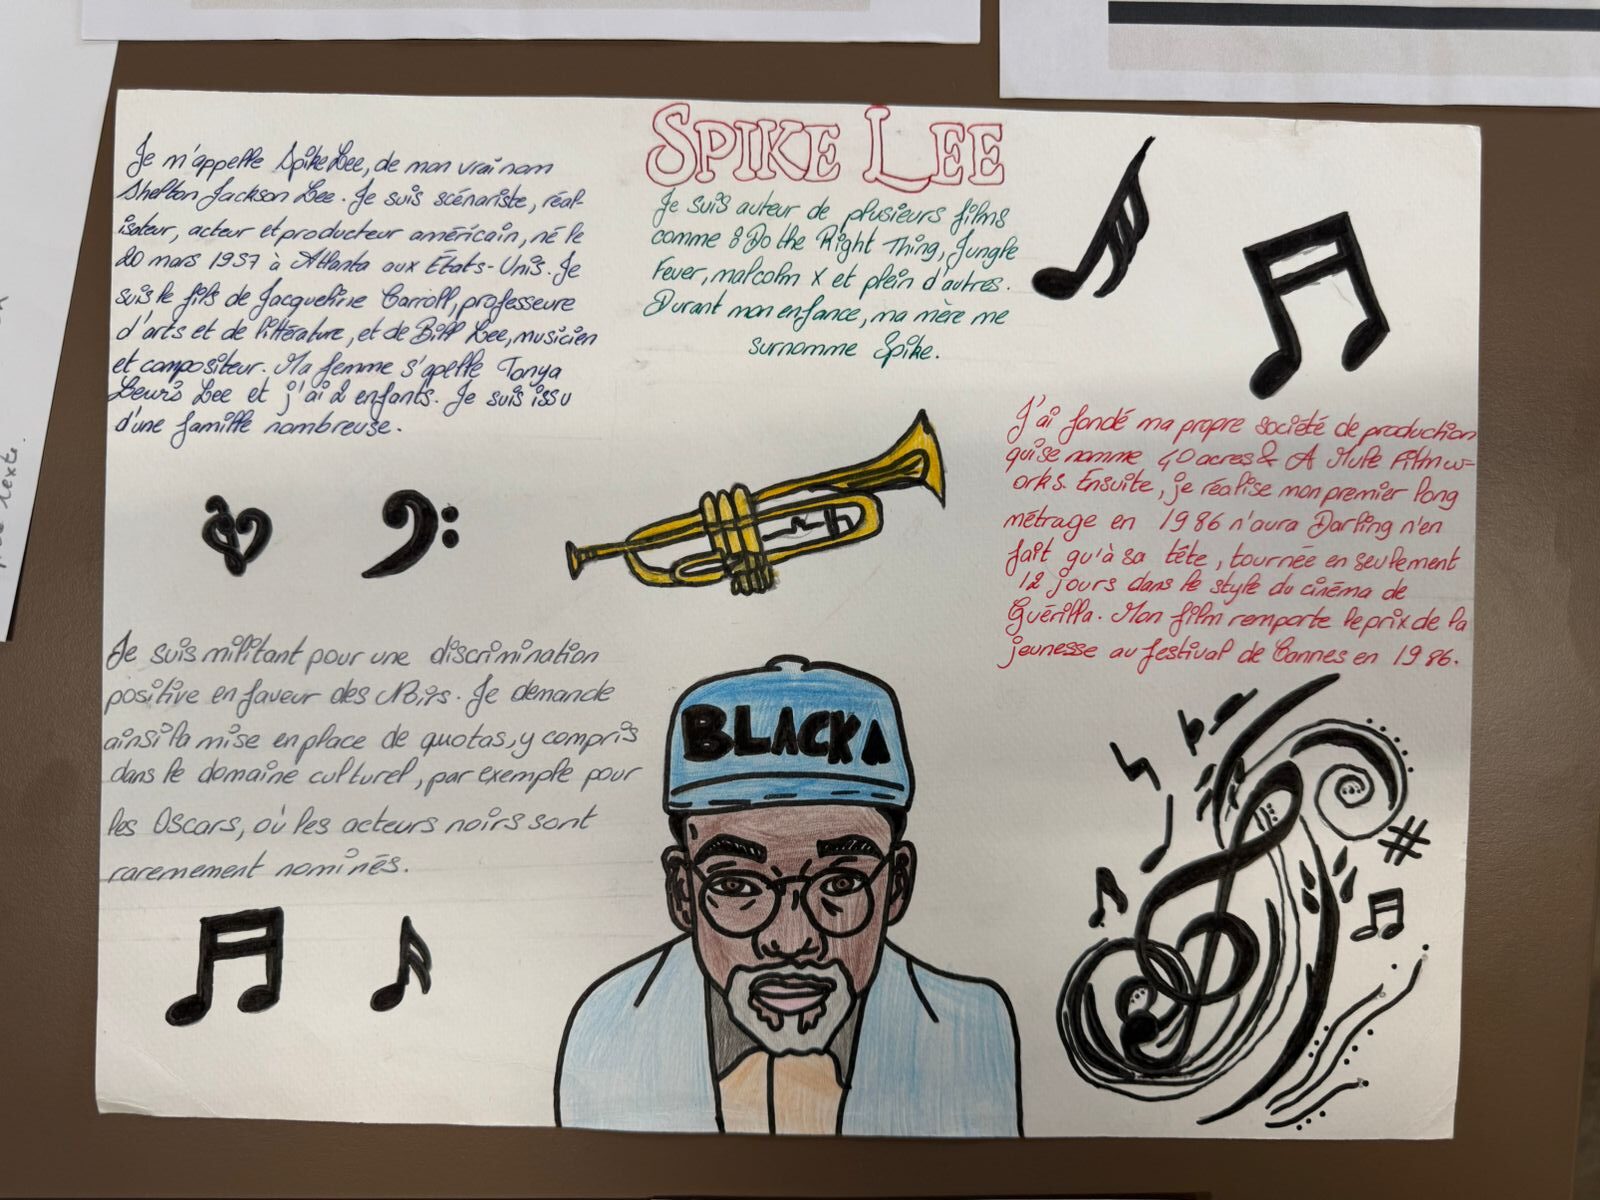 SPIKE LEE
Je m'appelle Spike Lee, de mon vrai nom
Shelton Jackson Lee. Je suis scénariste, réal-
isateur, acteur et producteur américain, né le
20 mars 1957 à Atlanta aux États-Unis. Je
suis le fils de Jacqueline Carroll, professeure
d'arts et de littérature, et de Bill Lee, musicien
et compositeur. Ma femme s'apelle Tonya
Lewis Lee et j'ai 2 enfants. Je suis issu
d'une famille nombreuse.
Je suis auteur de plusieurs films
comme : Do the Right Thing, Jungle
Fever, malcolm x et plein d'autres.
Durant mon enfance, ma mère me
surnomme Spike.
J'ai fondé ma propre société de production
qui se nomme 40 acres & A Mule Filmw-
orks. Ensuite, je réalise mon premier long
métrage en 1986 n'aura Darling n'en
fait qu'à sa tête, tournée en seulement
12 jours dans le style du cinéma de
Guérilla. Mon film remporte le prix de la
jeunesse au festival de Cannes en 1986.
Je suis militant pour une discrimination
positive en faveur des Noirs. Je demande
ainsi la mise en place de quotas, y compris
dans le domaine culturel, par exemple pour
les Oscars, où les acteurs noirs sont
raremement nominés.
BLACK